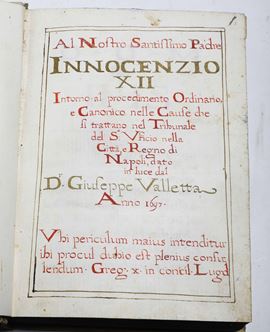 Al Nostro Santissimo Padre
INNOCENZIO
XII
Intorno al procedimento Ordinario,
e Canonico nelle Cause che
si trattano nel Tribunale
del S. Uficio nella
Città, e Regno di
Napoli, dato
in luce da
Dr. Giuseppe Valletta
Anno 1697.
Ubi periculum maius intenditur
ibi procul dubio est plenius consu-
lendum. Greg. X. in concil. Lugd